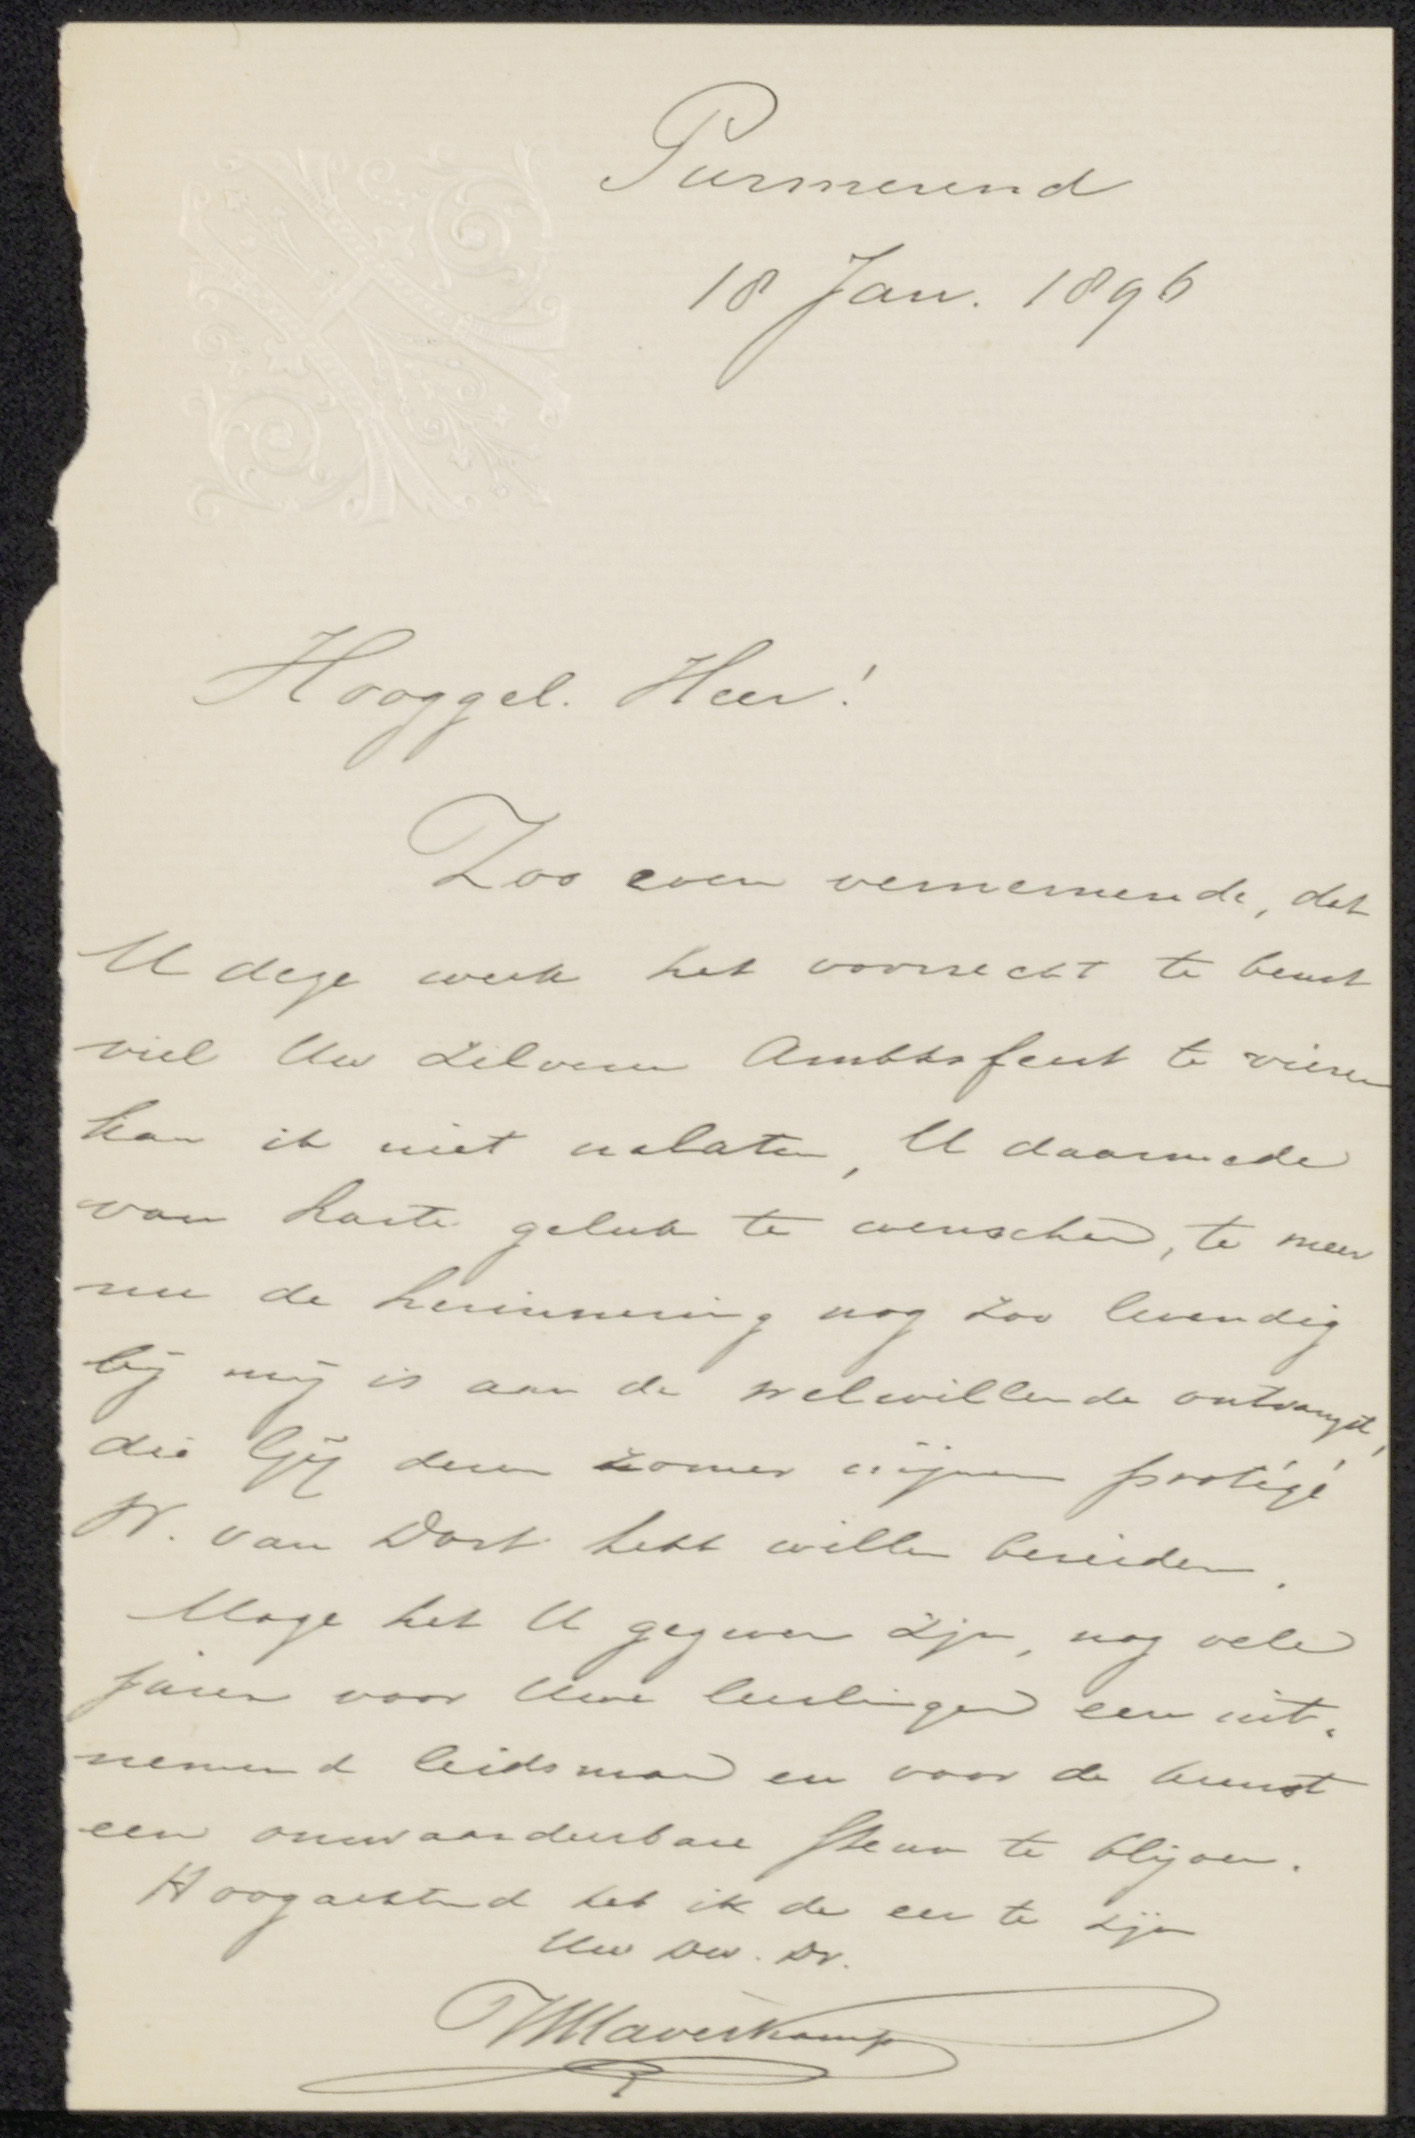 Purmerend
18 Jan. 1896
Hooggel. Heer!
Zoo even vernemende, dat
U deze week het voorrecht te beurt
viel Uw zilveren Ambtsfeest te vieren
kan ik niet nalaten, U daarmede
van harte geluk te wenschen, te meer
nu de herinnering nog zoo levendig
bij mij is aan de welwillende ontvangst,
die Gij dezen zomer mijnen protégé
W. van Dort hebt willen bereiden.
Moge het U gegeven zijn, nog vele
jaren voor Uwe leerlingen een uit-
nemend leidsman en voor de kunst
een onwaardeerbare steun te blijven.
Hoogachtend heb ik de eer te zijn
Uw Dw. Dr.
Haverkamp